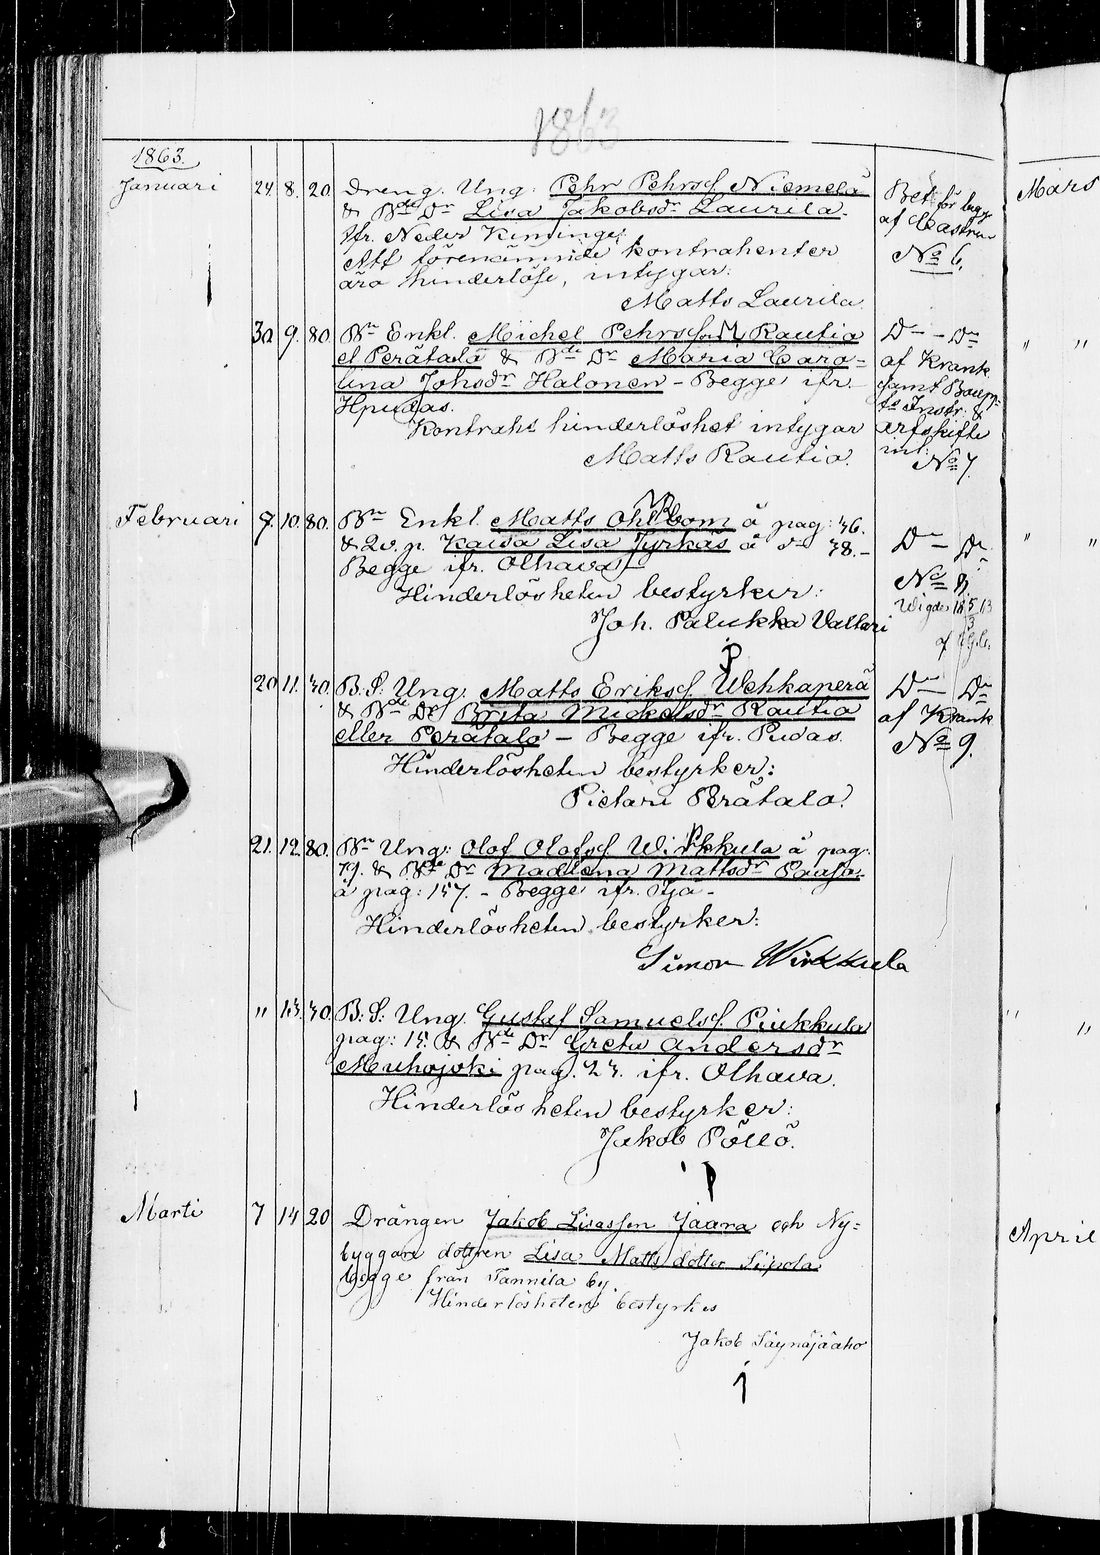 1863
1863.
Januari 24. 8. 20. Dreng. Ung. Pehr Pehrss. Niemelä
& Bde Dr Lisa Jakobsdr Laurila.
ifr. Neder Kiminge.
Att förenämnde kontrahenter
äro hinderlöse, intygar:
Matts Laurila
Bet för
af Castrén
No 6.
30. 9. 80. Bn Enkl. Michel Pehrsson Rautia
el Perätalo & Bde Dr Maria Caro-
lina Johsdr Halonen - Begge ifr.
Hpudas.
Kontrahs hinderlöshet intygar
Matts Rautio.
Do - Do
af Krank
samt Boupp-
ts Instr. &
arfskifte
int:
No 7.
Februari 9. 10. 80. Bn Enkl. Matts Ohlbom å pag: 36.
& Qv. p. Kaisa Lisa Tyrkäs å do 38. -
Begge ifr. Olhava -
Hinderlösheten bestyrker:
Joh. Palukka Vallari
Do - Do
No 8.
Wigde
20. 11. 30. B. S. Ung. Matts Erikss. Wehkaperä
& Bde Dr Brita Mickelsdr Rautia
eller Perätalo - Begge ifr. Pudas.
Hinderlösheten bestyrker:
Pietari Perätalo.
Do - Do
af Krank
No 9.
21. 12. 80. Bn Ung: Olof Olofss. Wirkkula å pag:
& Bde Dr Madlena Mattsdr Paaso
å pag: 157. - Begge ifr. Ijo -
Hinderlösheten bestyrker:
Simon Wirkkula
" 13. 30. B. S. Ung. Gustaf Samuelss. Piukkula
pag: 15. & Bde Dr Greta Andersdr
Muhojoki pag. 23. ifr. Olhava.
Hinderlösheten bestyrker:
Jakob Pöllö.
Marti 7 14 20 Drängen Jakob Lisasson Jaara och Ny-
byggare dottren Lisa Matts dotter Sipola
begge från Tannila by.
Hinderlösheten bestyrkes
Jakob Säynäjäaho
Mars
" "
" "
" "
April